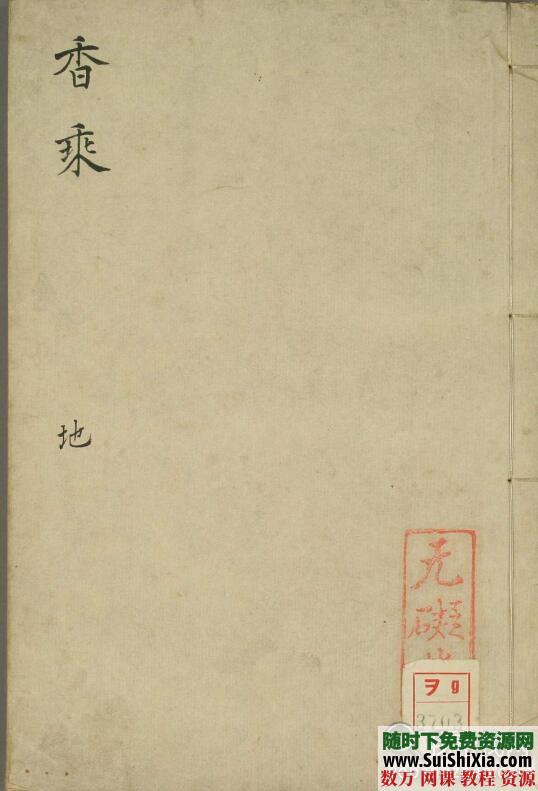 香乘
地
无礙
ヲ9
3703
随时下免费资源网
www.SuiShiXia.com
数万 网课 教程 资源